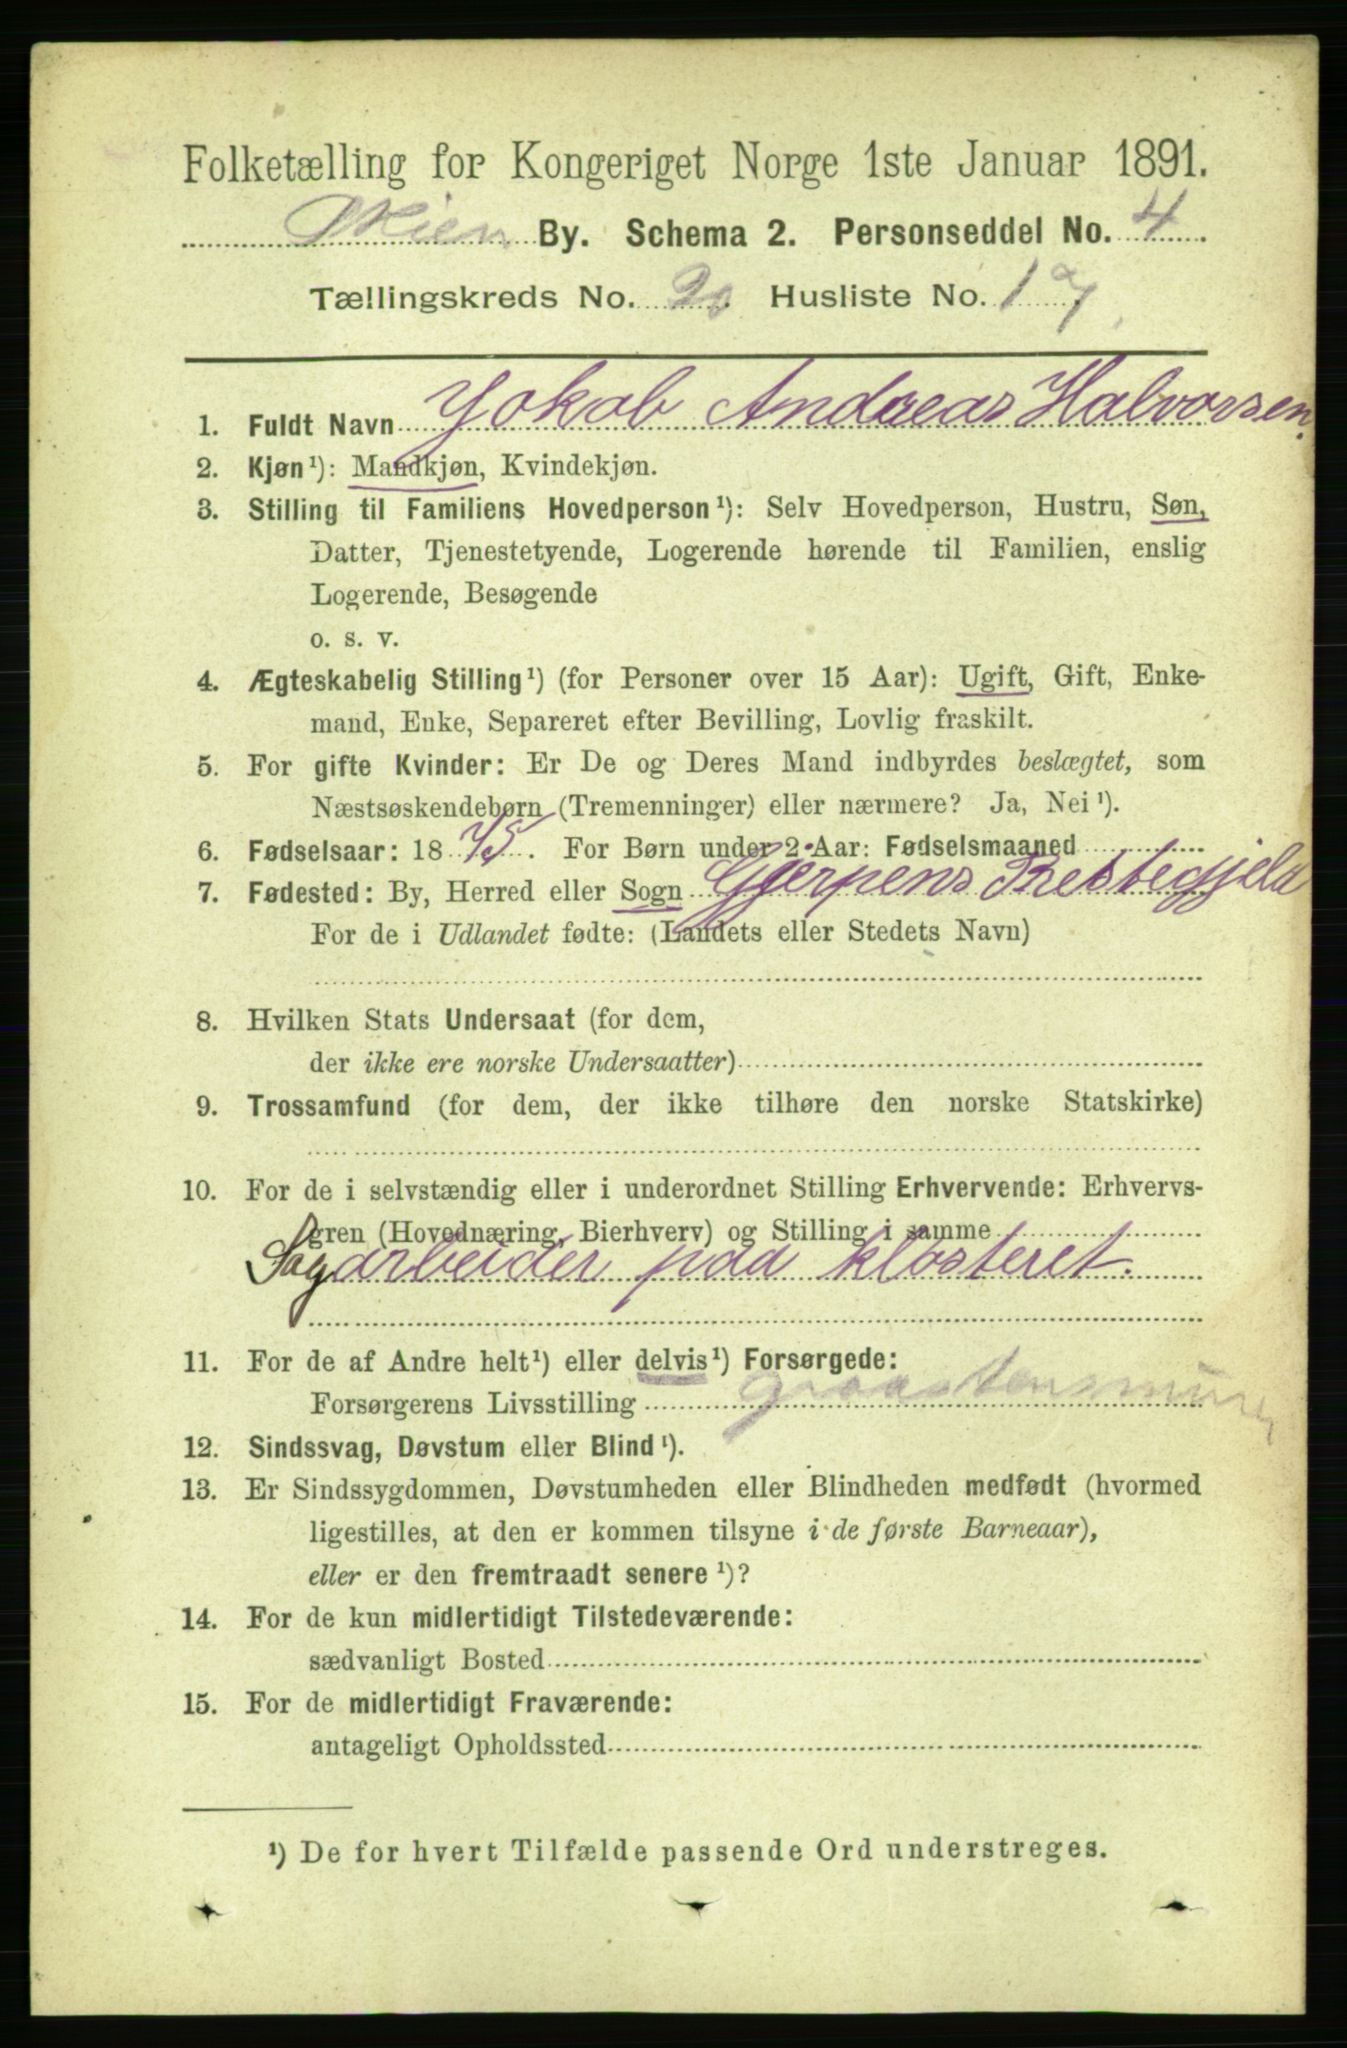 Folketælling for Kongeriget Norge 1ste Januar 1891.
Skien By. Schema 2. Personseddel No. 4
Tællingskreds No. 20 Husliste No. 17
1. Fuldt Navn Jokob Andreas Halvorsen.
2. Kjøn¹): Mandkjøn, Kvindekjøn.
3. Stilling til Familiens Hovedperson¹): Selv Hovedperson, Hustru, Søn,
Datter, Tjenestetyende, Logerende hørende til Familien, enslig
Logerende, Besøgende
o. s. v.
4. Ægteskabelig Stilling¹) (for Personer over 15 Aar): Ugift, Gift, Enke-
mand, Enke, Separeret efter Bevilling, Lovlig fraskilt.
5. For gifte Kvinder: Er De og Deres Mand indbyrdes beslægtet, som
Næstsøskendebørn (Tremenninger) eller nærmere? Ja, Nei¹).
6. Fødselsaar: 1875. For Børn under 2 Aar: Fødselsmaaned
7. Fødested: By, Herred eller Sogn Gjerpens Prestegjeld
For de i Udlandet fødte: (Landets eller Stedets Navn)
8. Hvilken Stats Undersaat (for dem,
der ikke ere norske Undersaatter)
9. Trossamfund (for dem, der ikke tilhøre den norske Statskirke)
10. For de i selvstændig eller i underordnet Stilling Erhvervende: Erhvervs-
gren (Hovednæring, Bierhverv) og Stilling i samme
Sagarbeider paa klosteret.
11. For de af Andre helt¹) eller delvis¹) Forsørgede:
Forsørgerens Livsstilling graastensmurer
12. Sindssvag, Døvstum eller Blind¹).
13. Er Sindssygdommen, Døvstumheden eller Blindheden medfødt (hvormed
ligestilles, at den er kommen tilsyne i de første Barneaar),
eller er den fremtraadt senere¹)?
14. For de kun midlertidigt Tilstedeværende:
sædvanligt Bosted
15. For de midlertidigt Fraværende:
antageligt Opholdssted
¹) De for hvert Tilfælde passende Ord understreges.